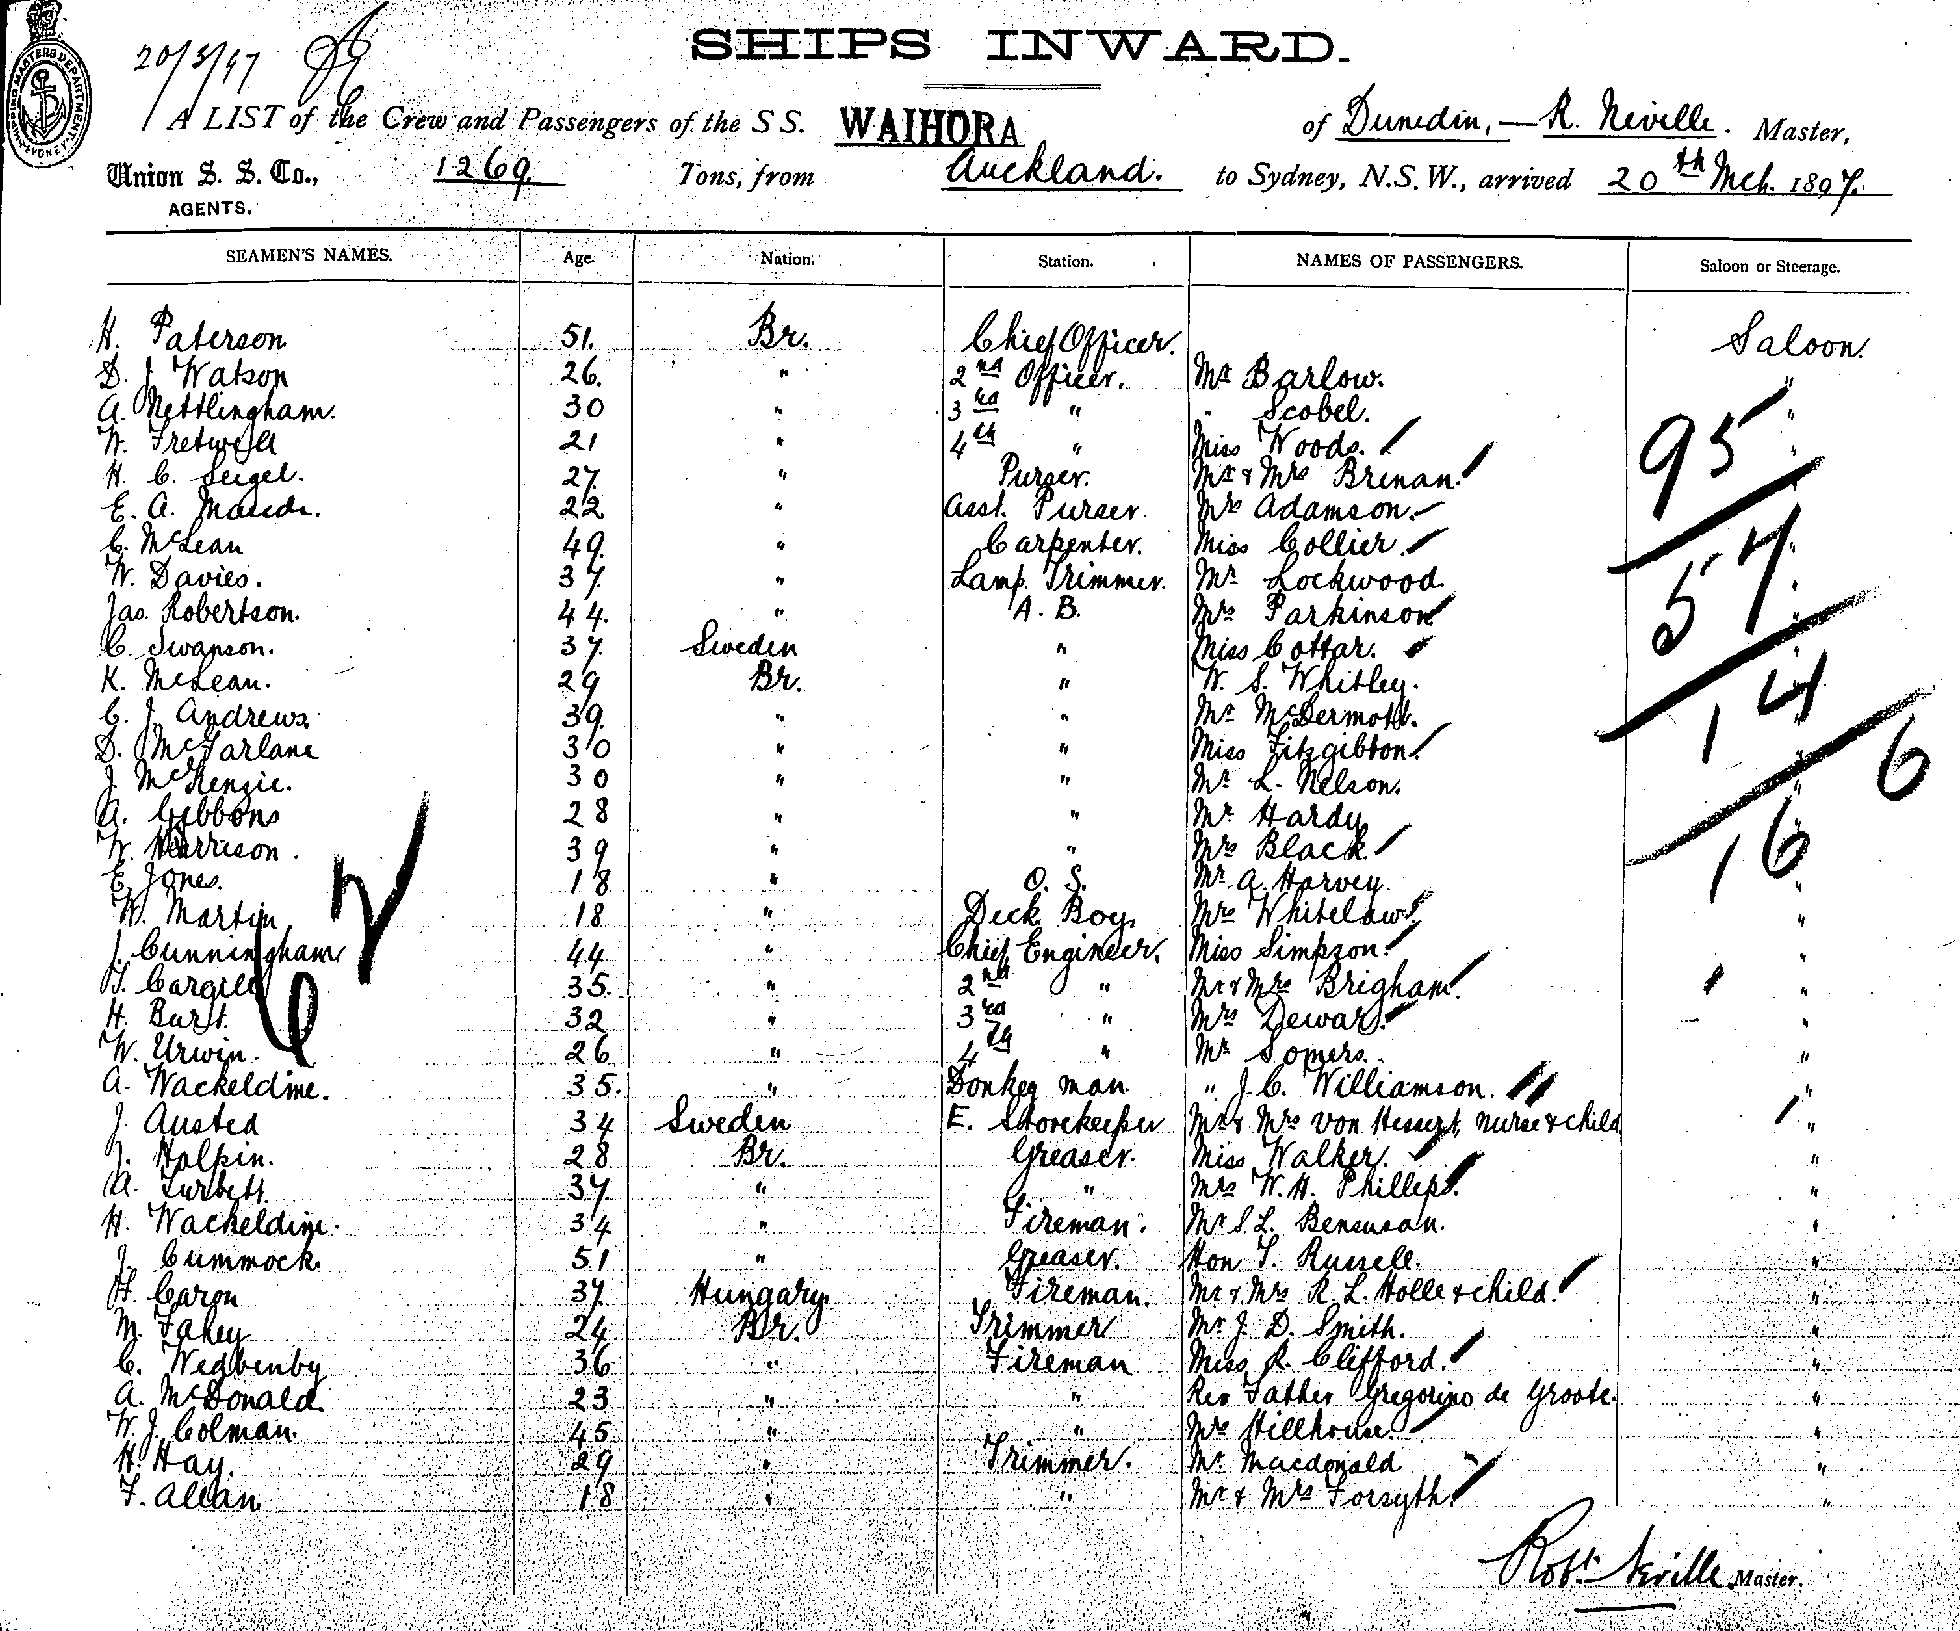 20/3/97
SHIPS INWARD.
A LIST of the Crew and Passengers of the S S. WAIHORA of Dunedin, — R. Neville. Master,
Union S. S. Co., 1269 Tons, from Auckland. to Sydney, N.S.W., arrived 20th Mch. 1897.
AGENTS.
SEAMEN'S NAMES. Age. Nation. Station. NAMES OF PASSENGERS. Saloon or Steerage.
H. Paterson 51. Br. Chief Officer. Saloon.
D. J. Watson 26. " 2nd Officer. Mr Barlow. "
A. Nettlingham. 30 " 3rd " " Scobel. "
W. Fretwell 21 " 4th " Miss Woods. "
H. C. Seigel. 27. " Purser. Mr & Mrs Brenan. "
E. A. 22 " Asst. Purser. Mrs Adamson. "
C. McLean 49. " Carpenter. Miss Collier. "
W. Davies. 37 " Lamp Trimmer. Mr Lockwood. "
Jas. Robertson. 44. " A. B. Mrs Parkinson "
C. Swanson. 37. Sweden " Miss Cottar. "
K. McLean. 29 Br. " W. S. Whitley. "
C. J. Andrews. 39. " " Mr McDermott. "
D. McFarlane 30 " " Miss Fitzgibbon. "
J. McKenzie. 30 " " Mr L. Nelson. "
A. Gibbons 28 " " Mr Hardy "
W. Harrison. 39 " " Mrs Black. "
E. Jones. 18 " O. S. Mr A. Harvey. "
W. Martin 18 " Deck Boy. Mrs Whitelaw. "
J. Cunningham 44 " Chief Engineer. Miss Simpson. "
T. Cargill 35. " 2nd " Mr & Mrs Brigham. "
H. Burst. 32 " 3rd " Mrs Dewar. "
W. Urwin. 26 " 4th " Mr Somers. "
A. Wackeldine. 35. " Donkey man " J. C. Williamson. "
J. Austed 34 Sweden E. Storekeeper Mr & Mrs von Hessert, nurse & child "
J. Halpin. 28 Br. Greaser. Miss Walker. "
A. Turbett. 37 " " Mrs W. H. Phillips. "
H. Wackeldine. 34 " Fireman. Mr S. L. Bensusan. "
J. Cummock. 51 " Greaser. Hon T. Russell. "
H. Caron 37. Hungary. Fireman. Mr & Mrs R. L. Holle & child. "
M. Fahey 24 Br. Trimmer Mr J. D. Smith. "
C. 36 " Fireman Miss R. Clifford. "
A. McDonald. 23 " " Rev Father Gregorino de Groote. "
W. J. Colman. 45 " " Mrs Hillhouse. "
H. Hay. 29 " Trimmer. Mr Macdonald "
F. Allan 18 " " Mr & Mrs Forsyth. "
95
57
14
6
16
Robt. Neville Master.